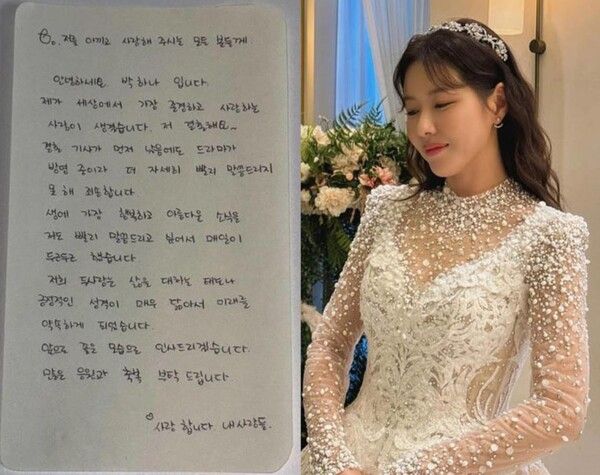 To. 저를 아끼고 사랑해 주시는 모든 분들께
안녕하세요 박하나 입니다.
제가 세상에서 가장 존경하고 사랑하는
사람이 생겼습니다. 저 결혼해요~
결혼 기사가 먼저 났음에도 드라마가
방영 중이라 더 자세히 빨리 말씀드리지
못 해 죄송합니다
생에 가장 행복하고 아름다운 소식을
저도 빨리 말씀드리고 싶어서 매일이
두근두근 했습니다.
저희 두사람은 삶을 대하는 태도나
긍정적인 성격이 매우 닮아서 미래를
약속하게 되었습니다.
앞으로 좋은 모습으로 인사드리겠습니다.
많은 응원과 축복 부탁 드립니다
♡사랑 합니다. 내사람들.